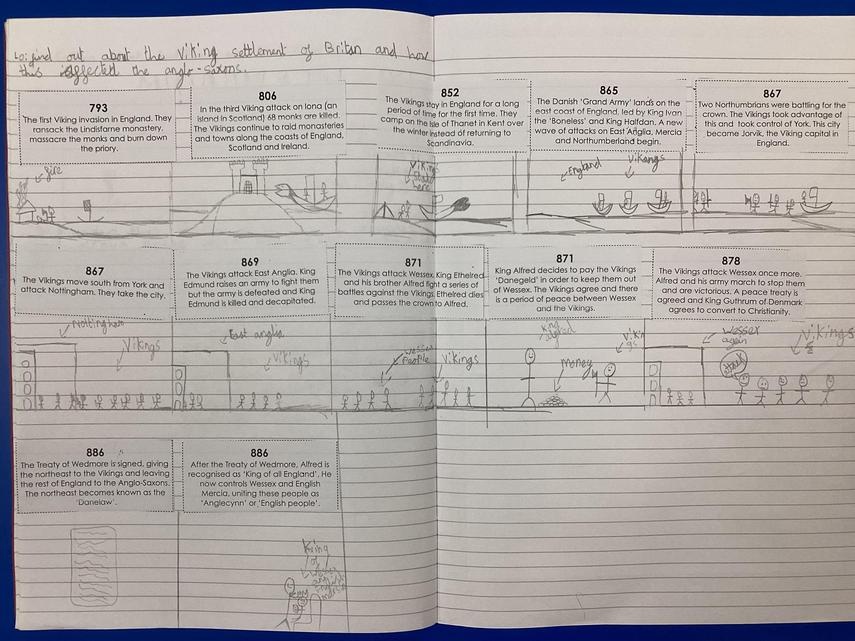 Lo: find out about the Viking settlement of Britan and how
this affected the anglo-saxons.
793
The first Viking invasion in England. They
ransack the Lindisfarne monastery,
massacre the monks and burn down
the priory.
806
In the third Viking attack on Iona (an
island in Scotland) 68 monks are killed.
The Vikings continue to raid monasteries
and towns along the coasts of England,
Scotland and Ireland.
852
The Vikings stay in England for a long
period of time for the first time. They
camp on the Isle of Thanet in Kent over
the winter instead of returning to
Scandinavia.
865
The Danish 'Grand Army' lands on the
east coast of England, led by King Ivan
the 'Boneless' and King Halfdan. A new
wave of attacks on East Anglia, Mercia
and Northumberland begin.
867
Two Northumbrians were battling for the
crown. The Vikings took advantage of
this and took control of York. This city
became Jorvik, the Viking capital in
England.
fire
Viking
here
England
Vikings
867
The Vikings move south from York and
attack Nottingham. They take the city.
869
The Vikings attack East Anglia. King
Edmund raises an army to fight them
but the army is defeated and King
Edmund is killed and decapitated.
871
The Vikings attack Wessex. King Ethelred
and his brother Alfred fight a series of
battles against the Vikings. Ethelred dies
and passes the crown to Alfred.
871
King Alfred decides to pay the Vikings
'Danegeld' in order to keep them out
of Wessex. The Vikings agree and there
is a period of peace between Wessex
and the Vikings.
878
The Vikings attack Wessex once more.
Alfred and his army march to stop them
and are victorious. A peace treaty is
agreed and King Guthrum of Denmark
agrees to convert to Christianity.
Nottingham
Vikings
East anglia
Vikings
Wessex
People
Vikings
King
alfred
money
Vikin
gs
Wessex
again
attack
Vikings
886
The Treaty of Wedmore is signed, giving
the northeast to the Vikings and leaving
the rest of England to the Anglo-Saxons.
The northeast becomes known as the
'Danelaw'.
886
After the Treaty of Wedmore, Alfred is
recognised as 'King of all England'. He
now controls Wessex and English
Mercia, uniting these people as
'Anglecynn' or 'English people'.
King
of
Wessex
and
English
mercia